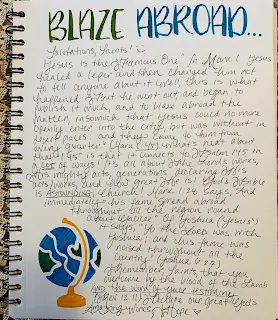 BLAZE ABROAD...
Salutations, Saints! ☺
Jesus is the "Famous One" In Mark 1 Jesus
healed a leper and then charged him not
to tell anyone about it. Well this is what
happened: "But he went out, and began to
publish it much, and to blaze abroad the
matter, insomuch that Jesus could no more
openly enter into the city, but was without in
desert places: and they came to him from
every quarter." (Mark 1:45) What's next about
this is that it connects to Psalm 145 in
a lot of ways! It's all about God's works,
His mighty acts, generations declaring His
acts/works, and how great He is! God's
is ASTOUNDING, Church! Mark 1:28 Says
immediately his fame spread abroad
throughout all the region round
about Galilee." In Joshua
it says, "So the Lord was with
Joshua; and his fame was
noised throughout all the
country." (Joshua 6:27)
Remember, Saints, that you
overcome by the blood of the Lamb
AND the word of your testimony
(Rev 12:11) Declare our great God's
amazing works! ♡